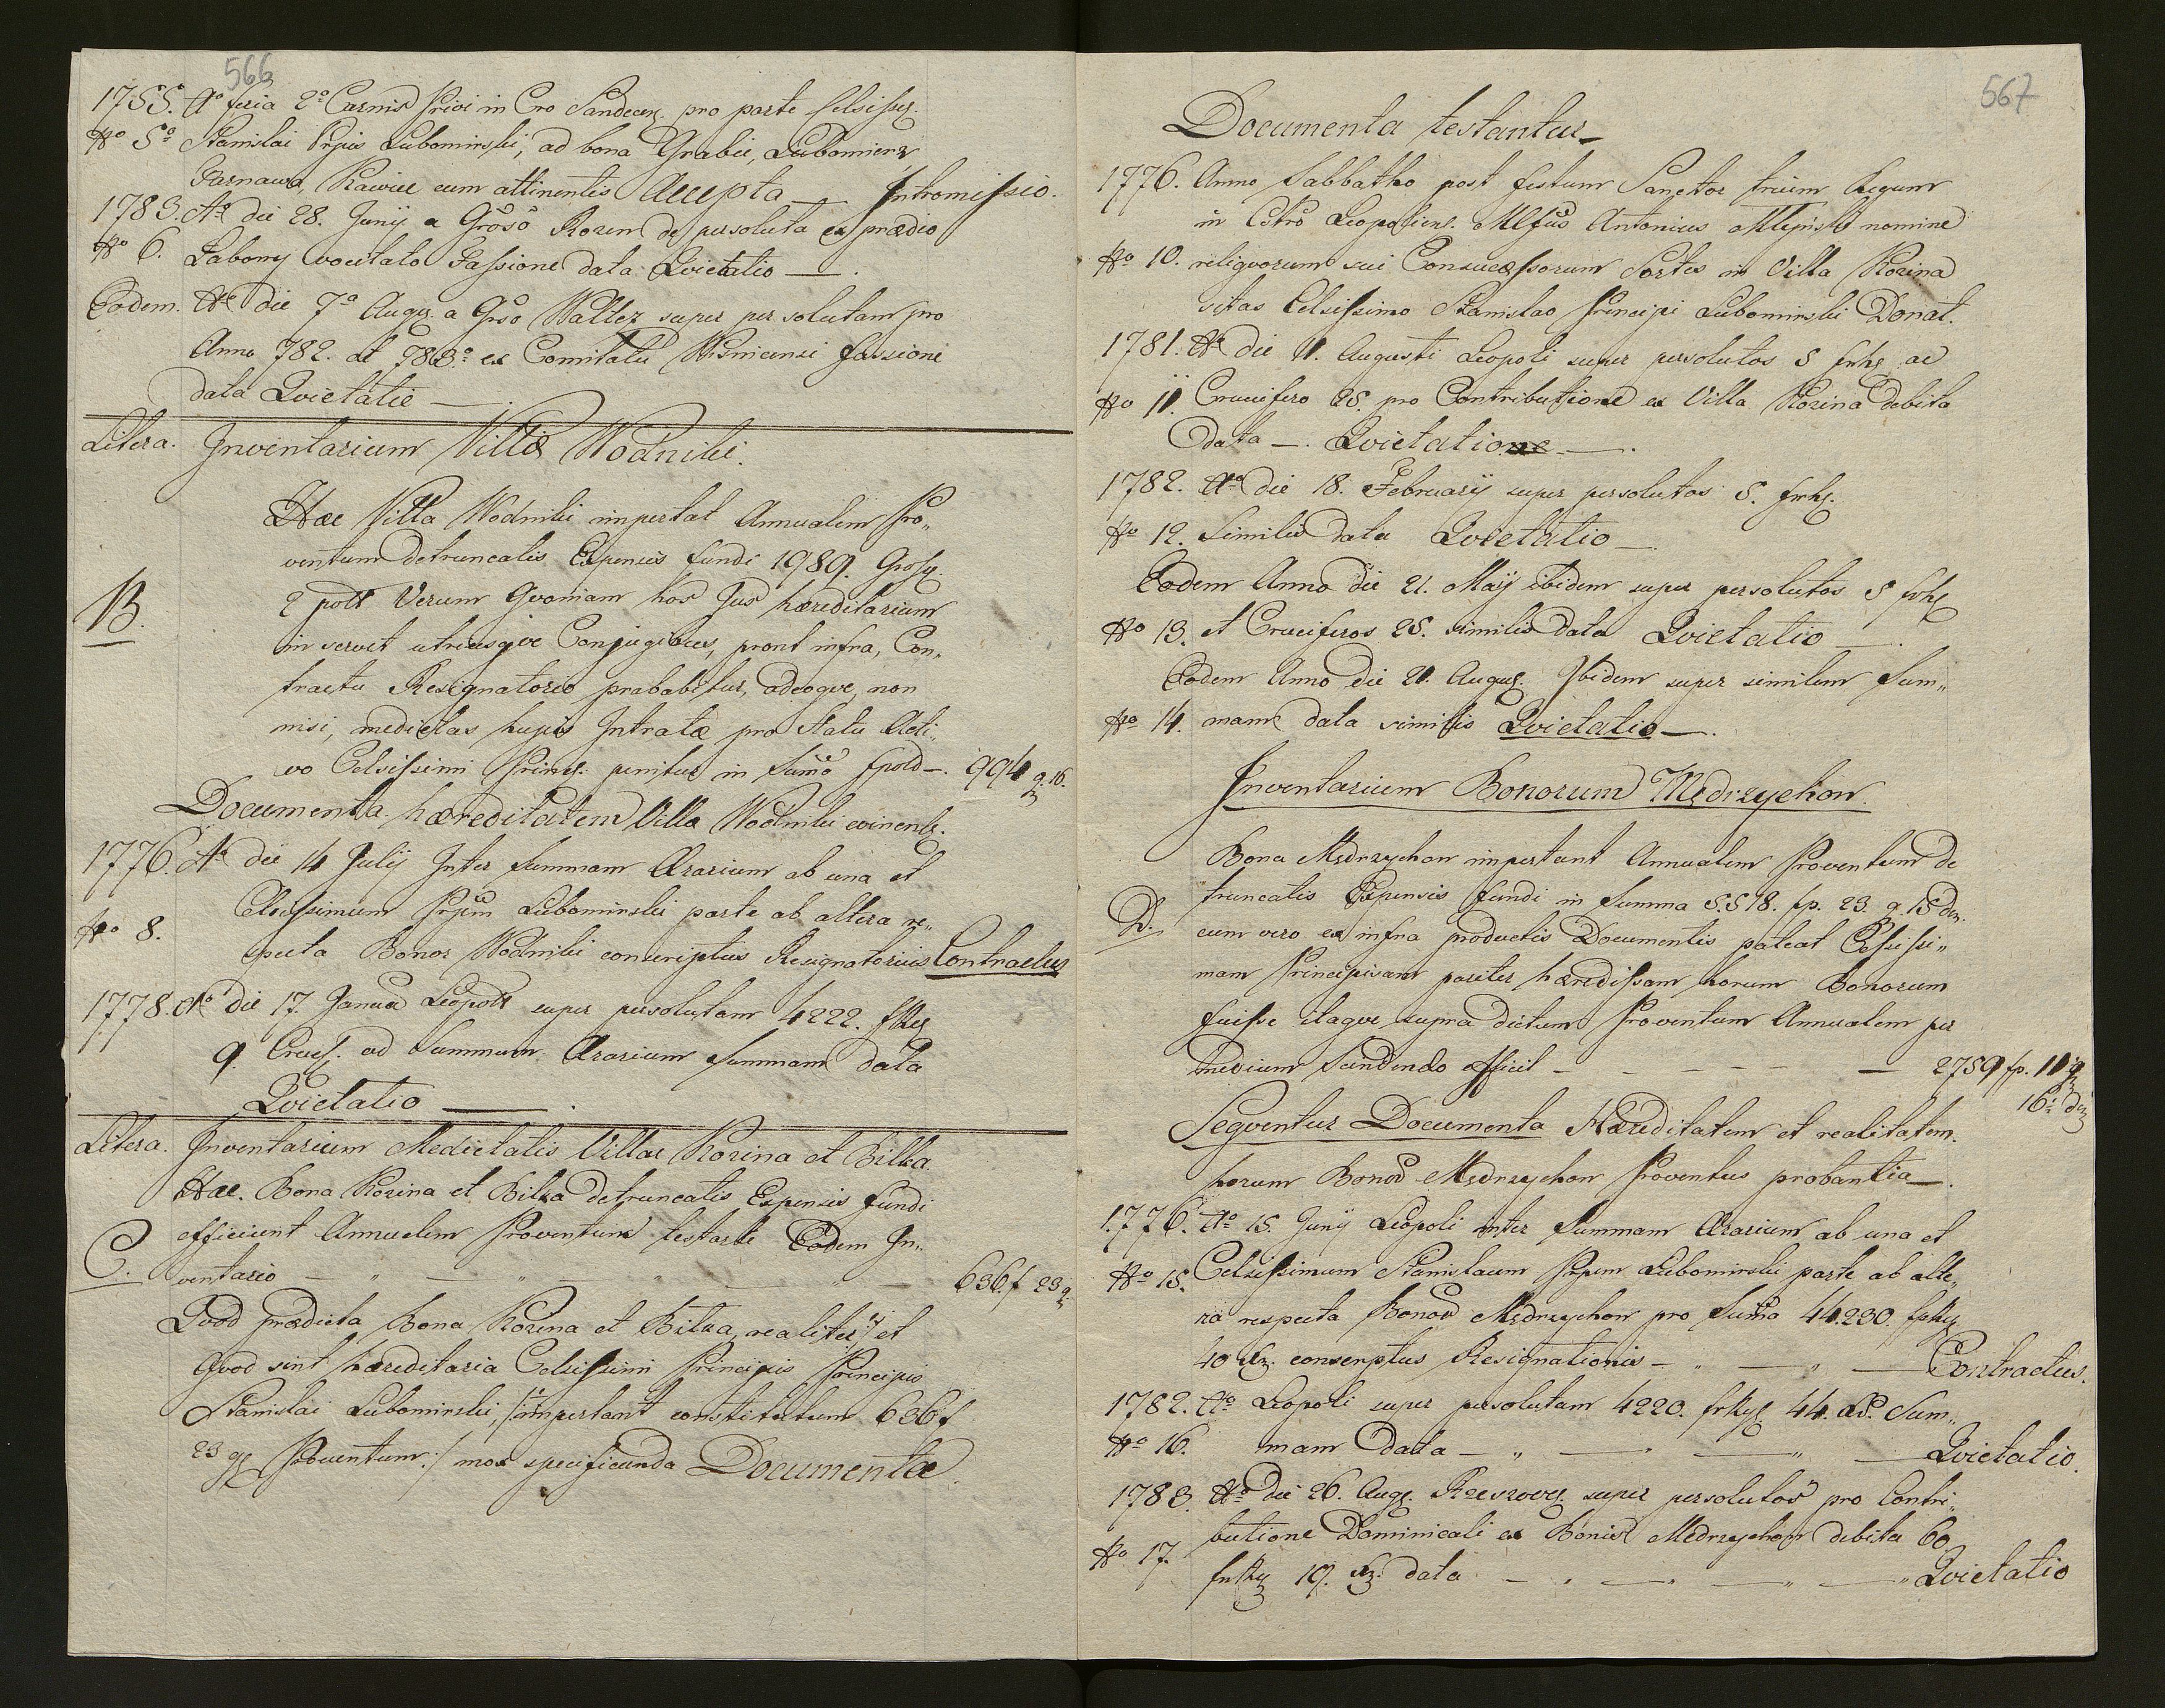 566
1755. Aº feria 2º Carnis Privi in Cro Sandecen. pro parte Celsiss.
Nº 5º Stanislai Prpis Lubomirski, ad bona Grabie, Lubomierz
Tarnawa, Rawice cum attinentis Accepta — Intromissio.
1783. Aº die 28. Junij a Groso Rozen de persoluta ex prædio
Nº 6. Labony vocitato Fassione data Qvietatio —.
Eodem. Aº die 7ª Augus. a Groso Walter super persolutam pro
Anno 782. et 783º ex Comitatu Wisnicensi fassione
data Qvietatie —.
Litera. Inventarium Villæ Wodniki.
Hæc Villa Wodniki importat Annualem Pro„
ventum detruncatis Expensis fundi 1989. Gross.
B. 2 poll Verum Qvoniam hos Jus hæreditarium
in servit utriusqve Conjugibus, prout infra, Con„
tractu Resignatorio probabitur, adeoqve non
nisi, medietas hujus Intratæ pro Statu Acti„
vo Celsissimi Princ. ponitur in Sumo fpold —. 994 g. 16.
Documenta hæreditatem Villa Wodniki evincents.
1776. Aº die 14 Julij Inter Summam Ærarium ab una et
Celsissimum Prpem Lubomirski parte ab altera re„
Nº 8. specta Bonor Wodniki conscriptus Resignatorius Contractus
1778. Aº die 17. Januar Leopoli super persolutam 4222. fRh
9. Cruc. ad Summum Ærarium Summam data
Qvietatio —.
Litera. Inventarium Medietatis Villae Rozina et Bilka.
Hæc. Bona Rozina et Bilka detruncatis Expensis fundi
efficient Annualem Proventum testante Eodem In„
C. ventario — „ — „ — 636 f 23 g.
Qvod prædicta Bona Rozina et Bilka, realiter et
qvod sint hæreditaria Celsissimi Principis Principis
Stanislai Lubomirski, /:important constitutum 636 f
23 g Proventum:/ mox specificanda Documenta.
567
Documenta testantur —
1776. Anno Sabbatho post festum Sanctor trium Regum
in Cstro Leopoliens. Mlfus Antonius Mlepiski nomine
Nº 10. reliqvorum sui Consuccessorum Sortes in Villa Rozina
sitas Celsissimo Stanislao Principi Lubomirski Donat.
1781. Aº die 11. Augusti Leopoli super persolutos 5 frh ac
Nº 11. Crucifero 25. pro Contributione ex Villa Rozina debita
data —. Qvietatione —.
1782. Aº die 18. Februarij super persolutos 5. frh
Nº 12. Similis data Qvietatio —
Eodem Anno die 21. Maij ibidem super persolutos 5 frh
Nº 13. et Cruciferos 25. similis data Qvietatio —.
Eodem Anno die 21. Augus. Ibidem super similem Sum„
Nº 14. mam data similis Qvietatio —.
Inventarium Bonorum Mędrzychow.
Bona Mędrzychow important Annualem Proventum de
truncatis Expensis fundi in Summa 5.518. fp. 23. g. 15 den.
D. cum vero ex infra productis Documentis pateat Celsissi„
mam Principissam pariter hæredissam horum Bonorum
fuisse itaqve supra dictum Proventum Annualem per
medium Scindendo efficit — — — — 2759 fp. 11 g
16½ den
Seqventur Documenta Hæreditatem et realitatem.
horum Bonor Mędrzychow Proventus probantia —.
1776. Aº 15. Junij Leopoli inter Summam Ærarium ab una et
Nº 15. Celsissimum Stanislaum Prpem Lubomirski parte ab alte„
ra respecta Bonor Mędrzychow pro Suma 44.230. fRh
40 Xr. conscriptus Resignationis — „ — „ — Contractus.
1782. Aº Leopoli super persolutam 4220. frh 44. Xr. Sum„
Nº 16. mam data — „ — „ — Qvietatio.
1783. Aº die 26. Aug. Rzeszoves super persolutos pro Contri„
butione Dominicali ex Bonis Mędrzychow debita 60
Nº 17. fRh 19. Xr. data — „ — „ — „ — „ Qvietatio